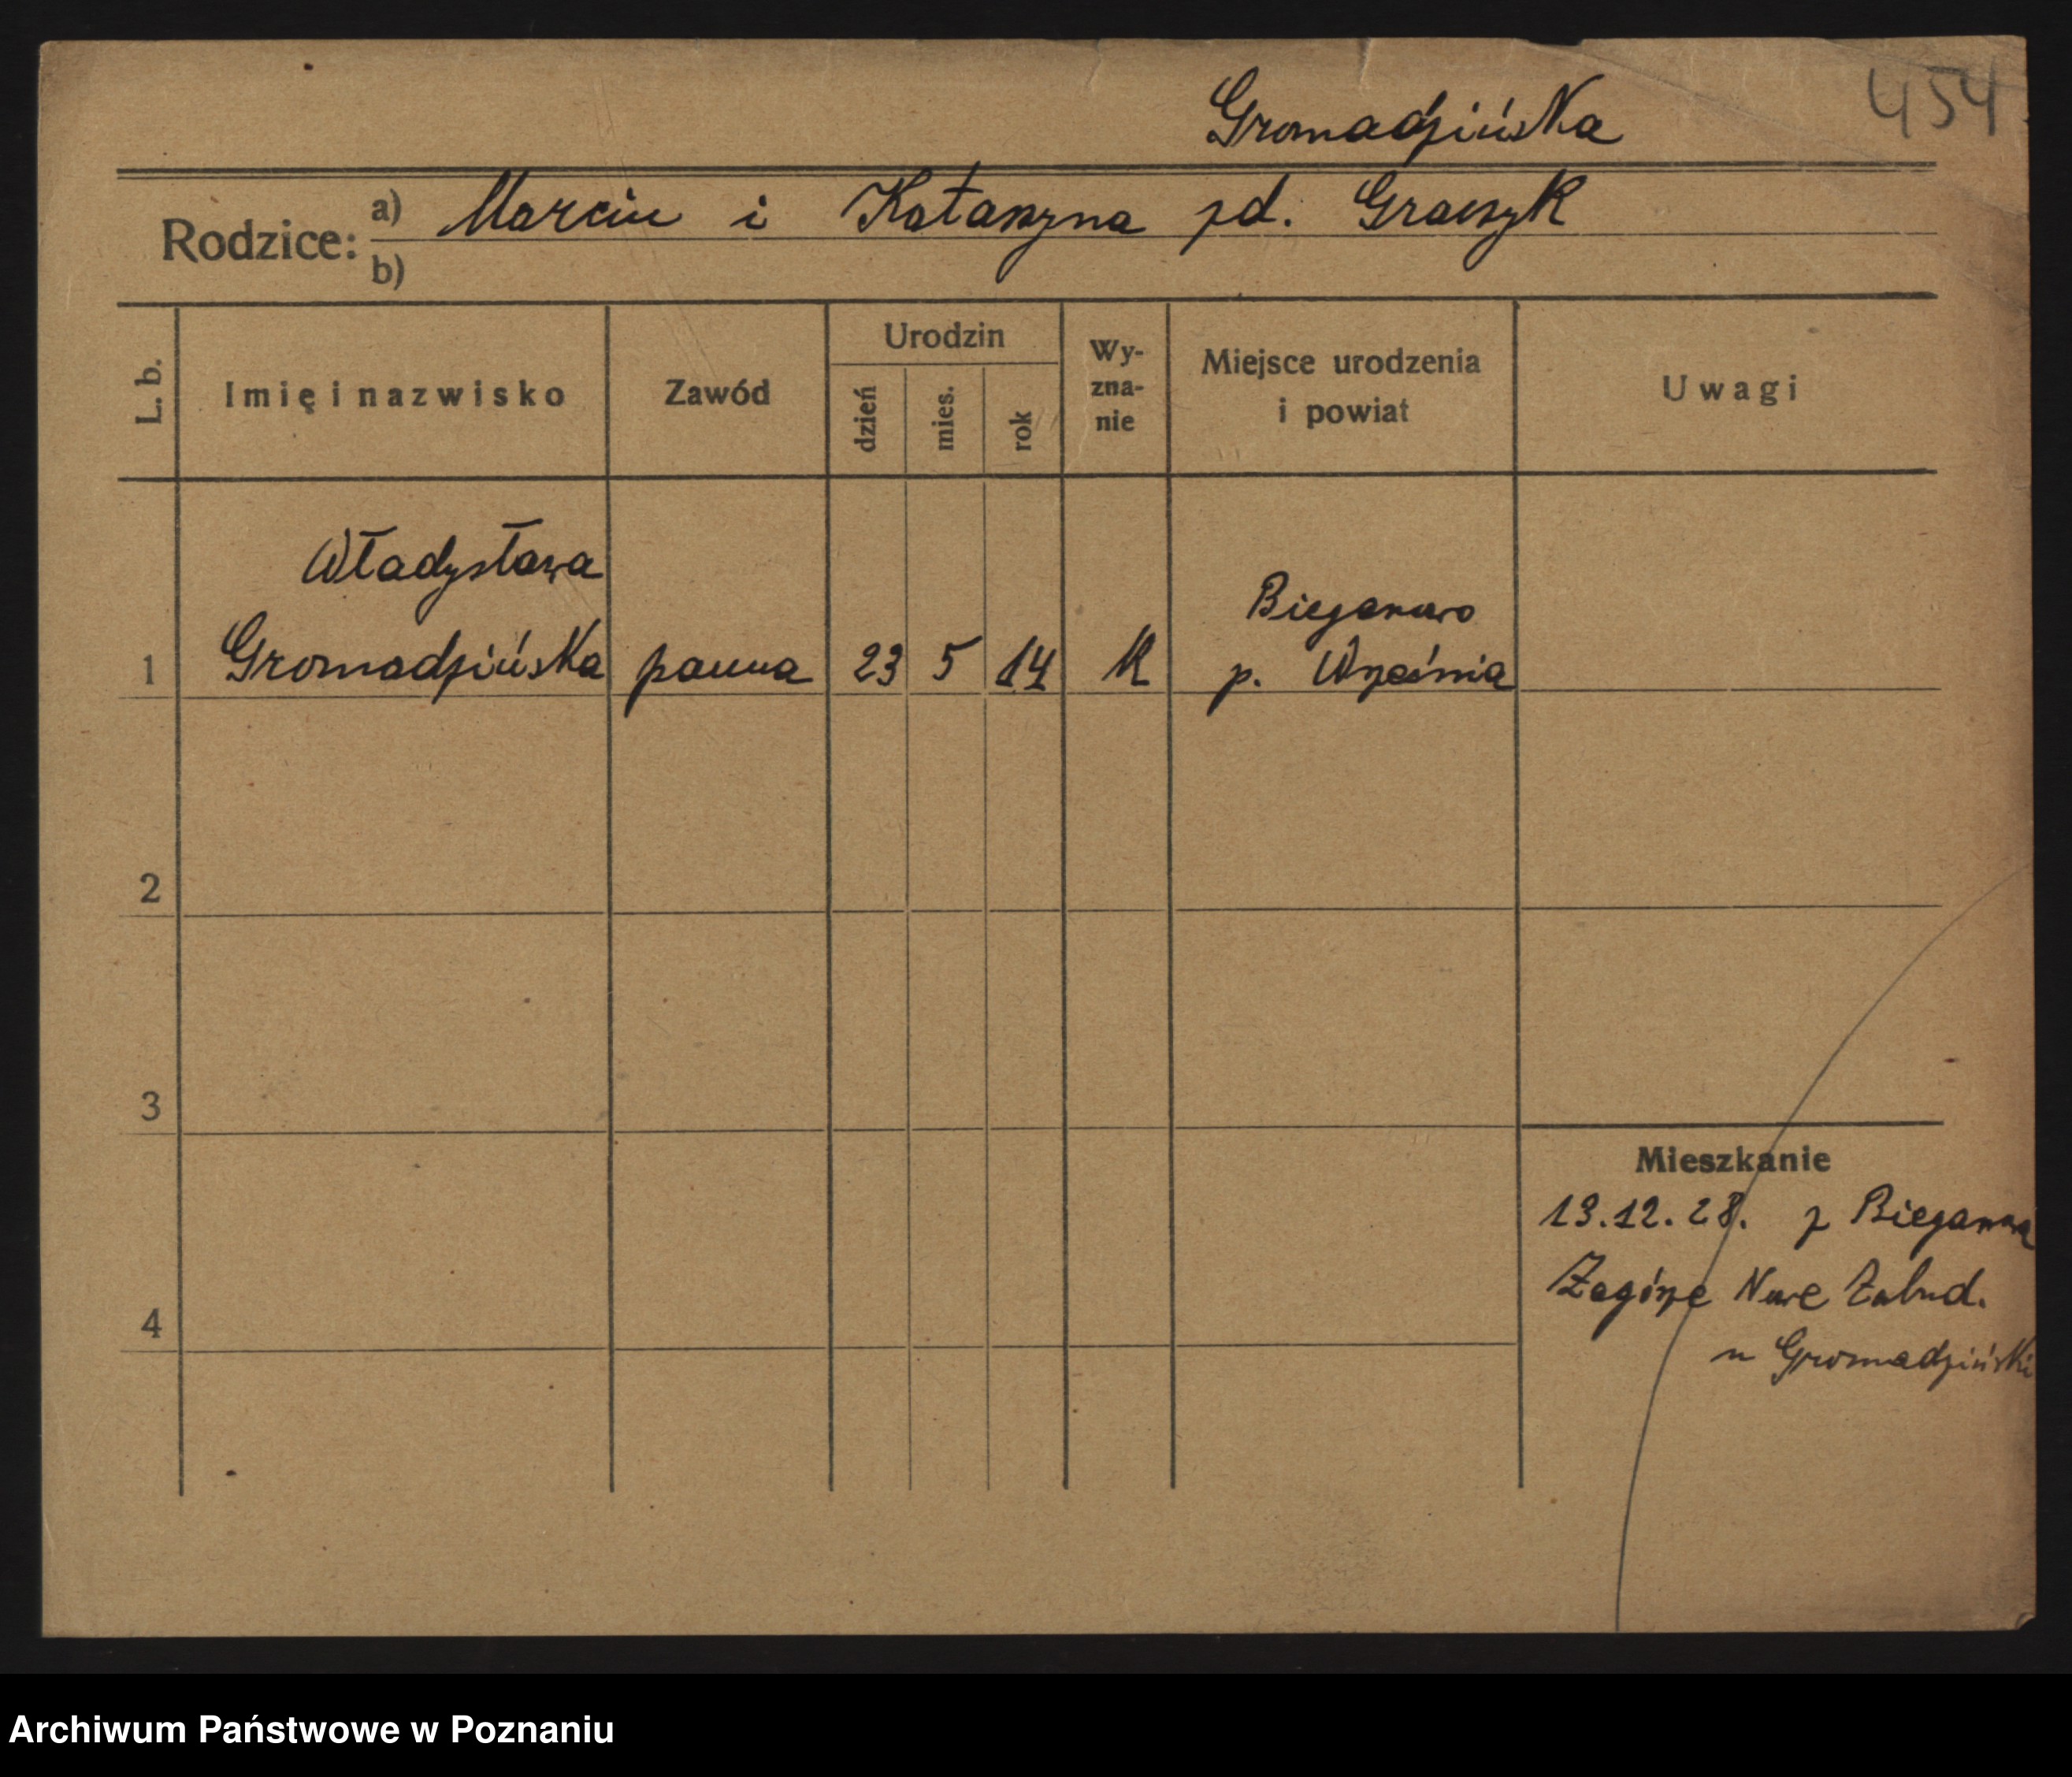 454
Gromadzińska
Rodzice: a) Marcin i Katarzyna zd. Graczyk
b)
L. b. Imię i nazwisko Zawód Urodzin dzień mies. rok Wy-zna-nie Miejsce urodzenia i powiat Uwagi
Władysława Bieganowo
1 Gromadzińska panna 23 5 14 k p. Września
2
3
Mieszkanie
13.12.28. z Bieganowa
Zagórze Nowe Zabud.
4
u Gromadziński
Archiwum Państwowe w Poznaniu